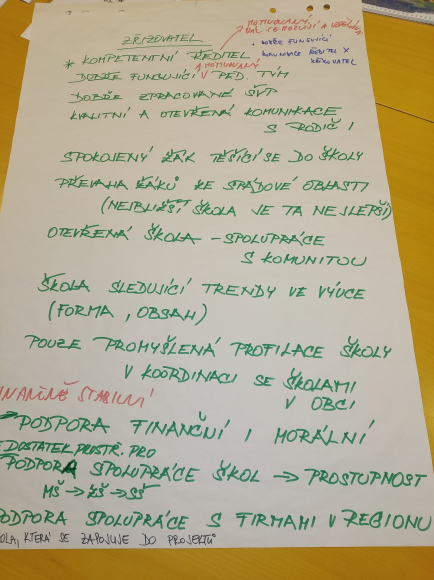 ZŘIZOVATEL
MOTIVOVANÝ
DÁL SE ROZVÍJÍ A VZDĚLÁVÁ
* KOMPETENTNÍ ŘEDITEL
• DOBŘE FUNGUJÍCÍ
KOMUNIKACE ŘEDITEL X
ZŘIZOVATEL
A MOTIVOVANÝ
DOBŘE FUNGUJÍCÍ V PED. TÝM
DOBŘE ZPRACOVANÉ ŠVP
KVALITNÍ A OTEVŘENÁ KOMUNIKACE
S RODIČI
SPOKOJENÝ ŽÁK TĚŠÍCÍ SE DO ŠKOLY
PŘEVAHA ŽÁKŮ ZE SPÁDOVÉ OBLASTI
(NEJBLIŽŠÍ ŠKOLA JE TA NEJLEPŠÍ)
OTEVŘENÁ ŠKOLA - SPOLUPRÁCE
S KOMUNITOU
ŠKOLA SLEDUJÍCÍ TRENDY VE VÝUCE
(FORMA, OBSAH)
POUZE PROMYŠLENÁ PROFILACE ŠKOLY
V KOORDINACI SE ŠKOLAMI
V OBCI
PODPORA FINANČNÍ I MORÁLNÍ
DOSTATEK PROSTŘ. PRO
PODPORA SPOLUPRÁCE ŠKOL → PROSTUPNOST
MŠ → ZŠ → SŠ
PODPORA SPOLUPRÁCE S FIRMAMI V REGIONU
KTERÁ SE ZAPOJUJE DO PROJEKTŮ